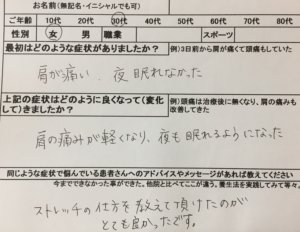 お名前(無記名・イニシャルでも可)
ご年齢 10代 20代 30代 40代 50代 60代
性別 女 男 職業 スポーツ
最初はどのような症状がありましたか？ 例)3日前から肩が痛くて頭痛もしていた
肩が痛い、夜眠れなかった
上記の症状はどのように良くなって(変化 例)頭痛は治療後に無くなり、肩の痛みも
して)きましたか？ 改善してきた
肩の痛みが軽くなり、夜も眠れるようになった
同じような症状で悩んでいる患者さんへのアドバイスやメッセージがあれば教えてください
今までできなかった事ができた。他院と比べてここが違う。養生法を実践してみて等々。
ストレッチの仕方を教えて頂けたのが
とても良かったです。